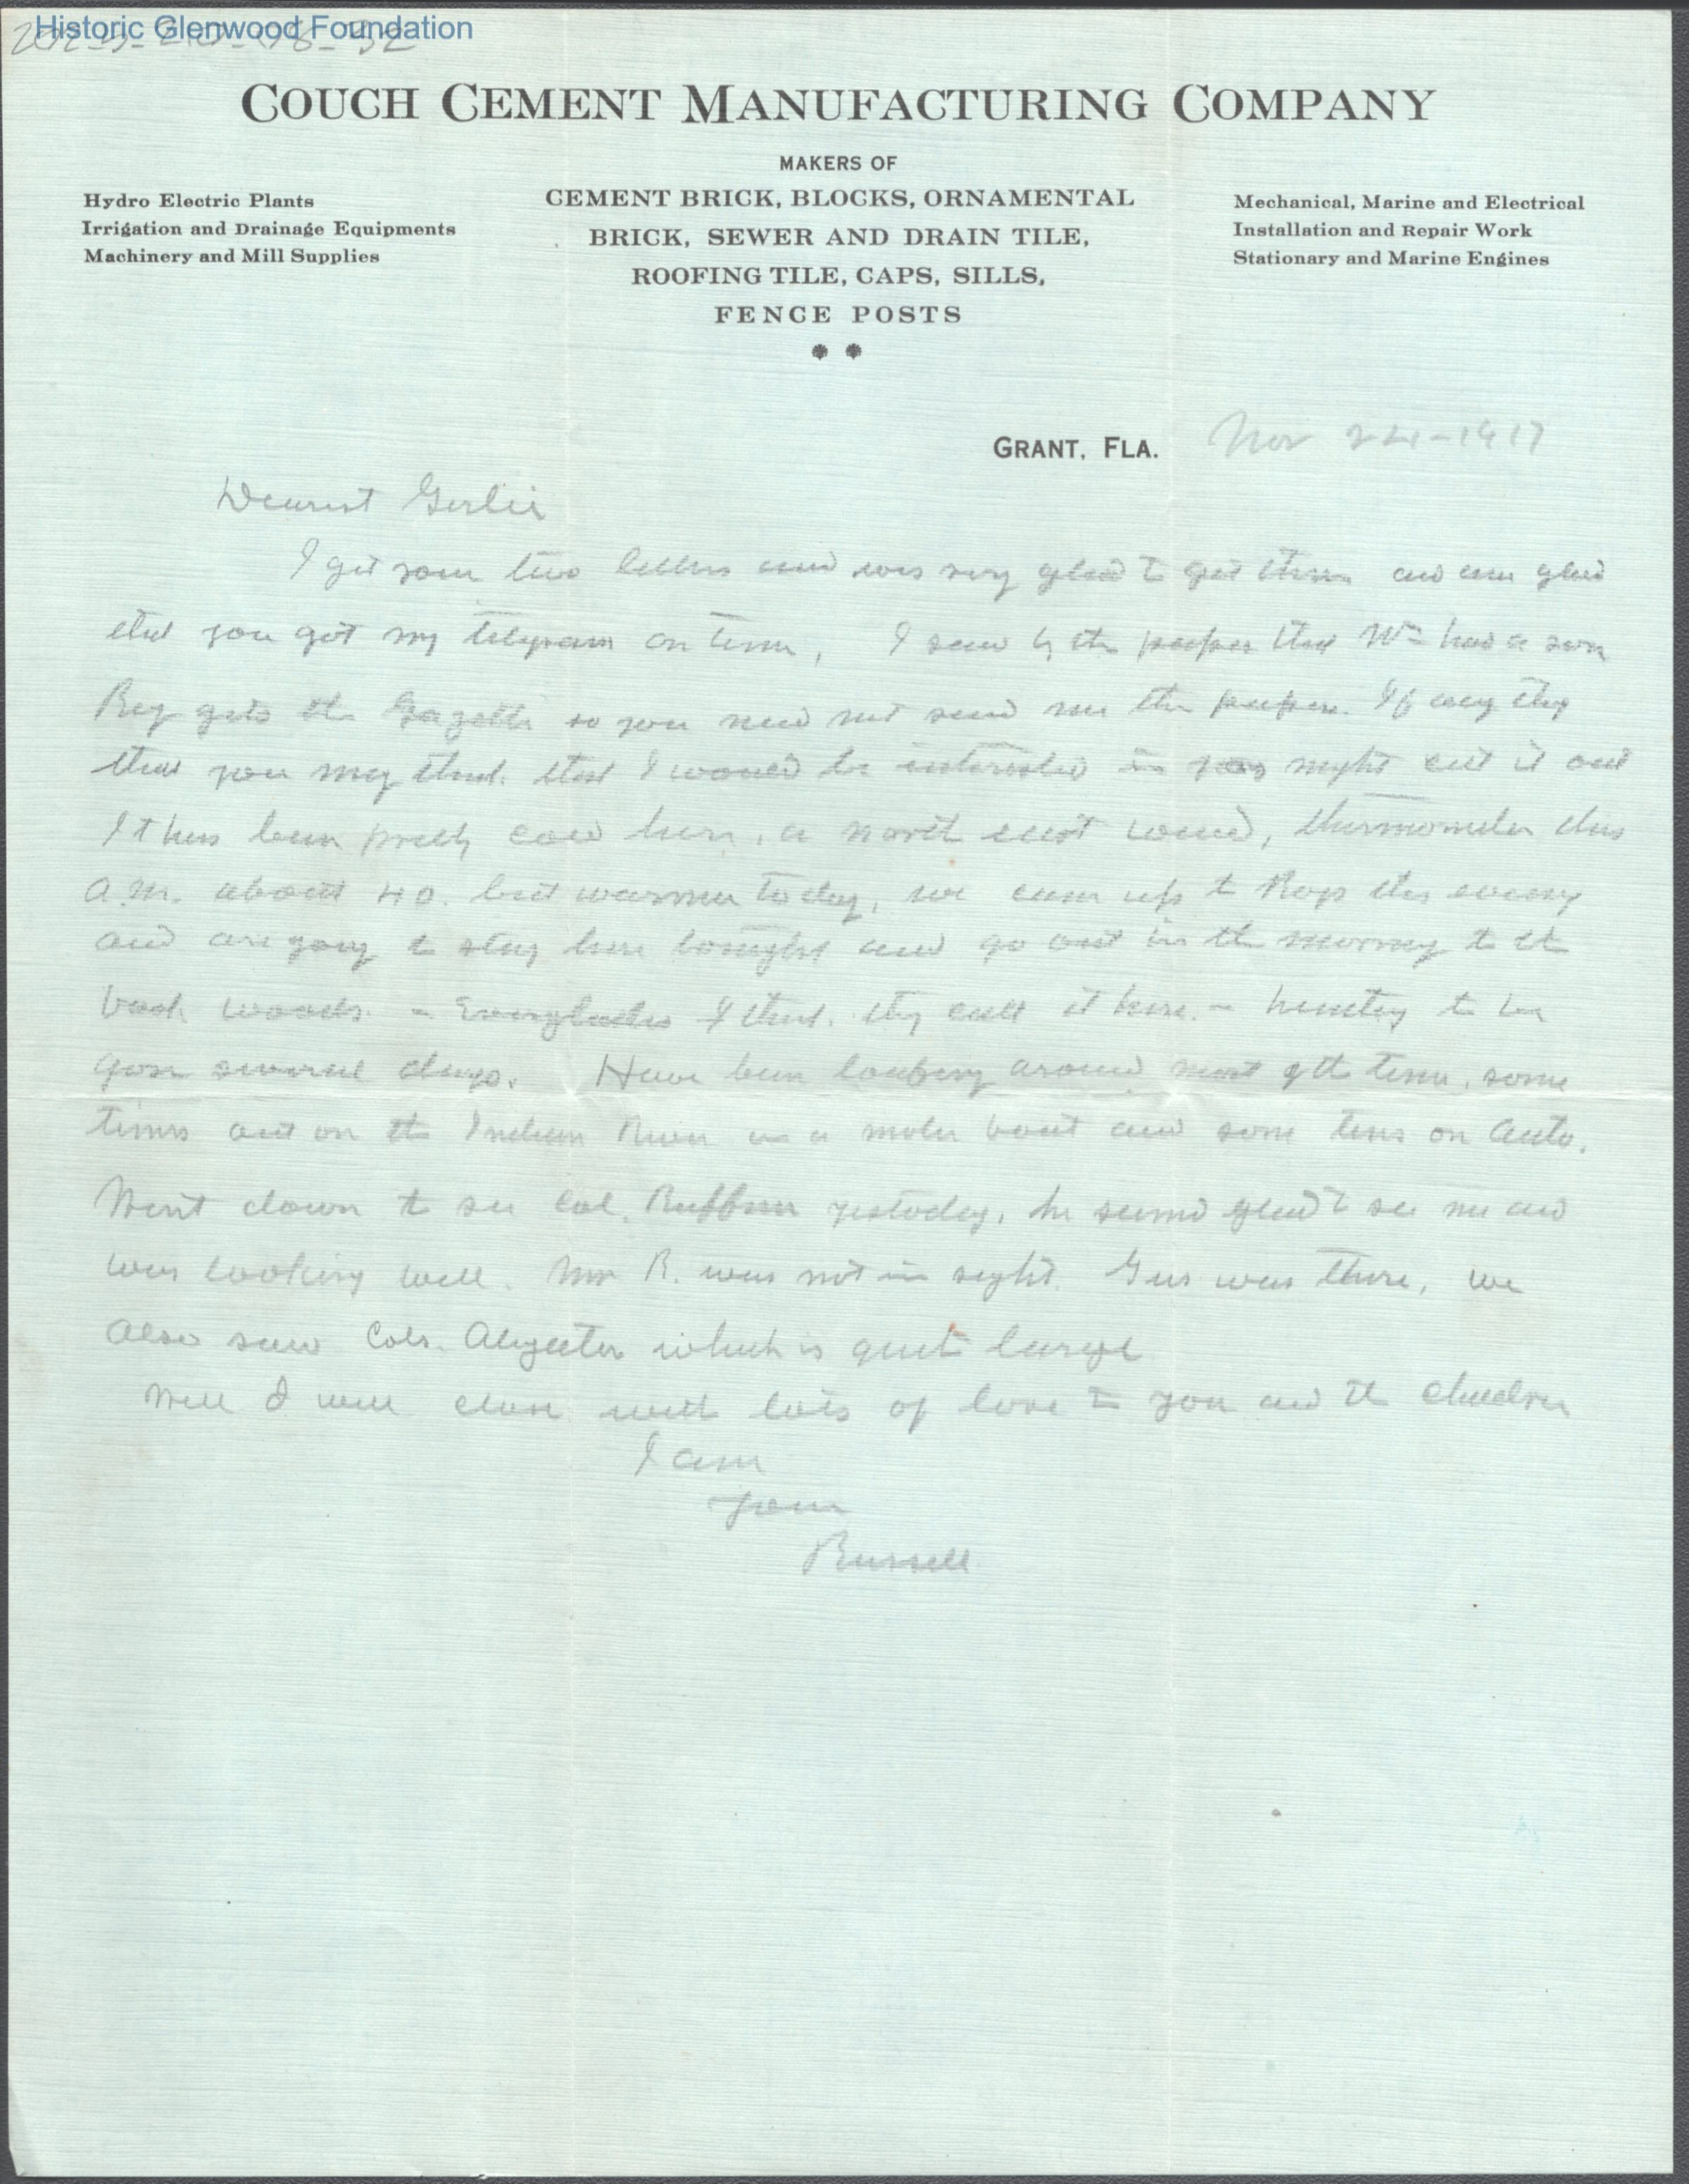 Historic Glenwood Foundation
COUCH CEMENT MANUFACTURING COMPANY
MAKERS OF
CEMENT BRICK, BLOCKS, ORNAMENTAL
BRICK, SEWER AND DRAIN TILE,
ROOFING TILE, CAPS, SILLS,
FENCE POSTS
Hydro Electric Plants
Irrigation and Drainage Equipments
Machinery and Mill Supplies
Mechanical, Marine and Electrical
Installation and Repair Work
Stationary and Marine Engines
GRANT, FLA. Nov 24-1917
Dearest Girlie
I got your two letters and was very glad to get them and am glad
that you got my telegram on time, I saw by the paper that Wm had a son
Reg gets the Gazette so you need not send me the paper. If any thing
that you may think that I would be interested in you might cut it out
It has been pretty cold here, a north east wind, thermometer this
a.m. about 40. but warmer today, we came up to this evening
and are going to stay here tonight and go out in the morning to the
back woods. - Everglades I think they call it here. - hunting to be
gone several days. Have been loafing around most of the time, some
times out on the Indian River in a motor boat and some times on Auto.
Went down to see Col. Ruffner yestoday, he seemd glad to see me and
was looking well. Mrs R. was not in sight. Gus was there, we
also saw Cols. Aligator which is quit large
Well I will close with lots of love to you and the children
I am
your
Russell